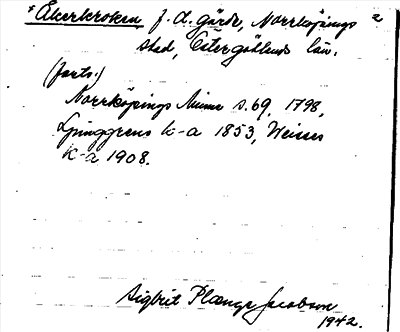 *Åkerkroken f. d. gärde, Norrköpings 2
stad, Östergötlands län.
(forts.)
Norrköpings Minne s. 69, 1798,
Ljunggrens k-a 1853, Weises
k-a 1908.
Sigbrit Plænge Jacobson
1942.